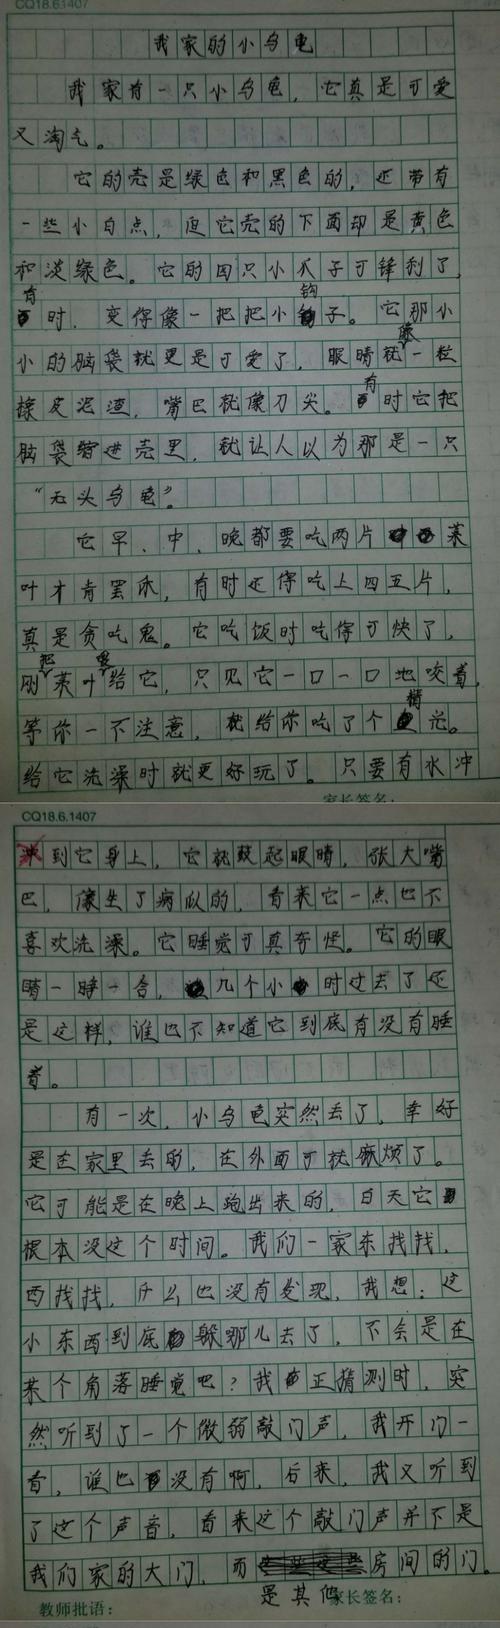 CQ18.6.1407
我家的小乌龟
我家有一只小乌龟，它真是可爱
又淘气。
它的壳是绿色和黑色的，还带有
一些小白点，但它壳的下面却是黄色
和淡绿色。它的四只小爪子可锋利了，
有时，变得像一把把小钩子。它那小
小的脑袋就更是可爱了，眼睛就像一粒
橡皮泥渣，嘴巴就像刀尖。有时它把
脑袋缩进壳里，就让人以为那是一只
“无头乌龟”。
它早、中、晚都要吃两片菜
叶才肯罢休，有时还得吃上四五片，
真是贪吃鬼。它吃饭时吃得可快了，
刚把菜叶喂给它，只见它一口一口地咬着，
等你一不注意，就给你吃了个精光。
给它洗澡时就更好玩了。只要有水冲
家长签名：
CQ18.6.1407
到它身上，它就鼓起眼睛，张大嘴
巴，像生了病似的，看来它一点也不
喜欢洗澡。它睡觉可真奇怪。它的眼
睛一睁一合，几个小时过去了还
是这样，谁也不知道它到底有没有睡
着。
有一次，小乌龟突然丢了，幸好
是在家里丢的，在外面可就麻烦了。
它可能是在晚上跑出来的，白天它
根本没这个时间。我们一家东找找，
西找找，什么也没有发现，我想：这
小东西到底躲哪儿去了，不会是在
某个角落睡觉吧？我正猜测时，突
然听到了一个微弱敲门声，我开门一
看，谁也没有啊，后来，我又听到
了这个声音，看来这个敲门声并不是
我们家的大门，而是其他房间的门。
教师批语： 家长签名：